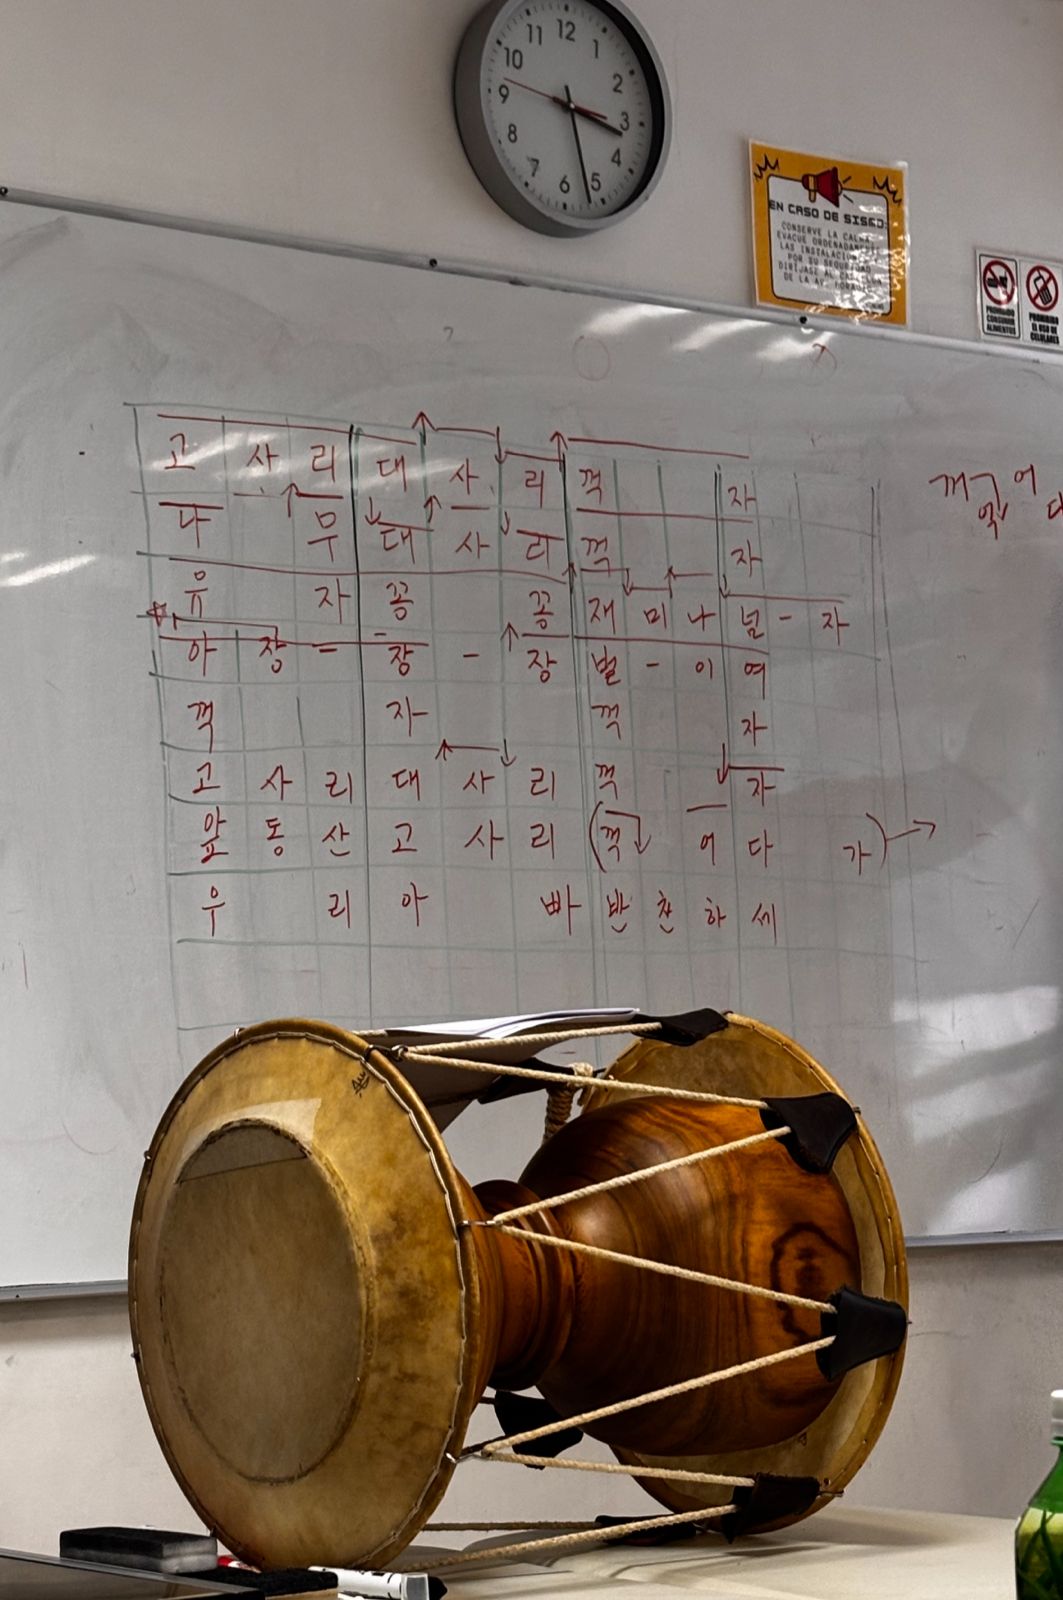 11 12 1
10 2
9 3
8 4
7 6 5
EN CASO DE SISMO:
CONSERVE LA CALMA
EVACUE ORDENADAMENTE
LAS INSTALACIONES
POR SU SEGURIDAD
DIRÍJASE AL
DE LA AV.
PROHIBIDO
CONSUMIR
ALIMENTOS
PROHIBIDO
EL USO DE
CELULARES
고 사 리 대 사 리 꺽 자
나 무 대 사 리 꺽 자
유 자 꽁 꽁 재 미 나 넘 - 자
아 장 - 장 - 장 벌 - 이 여
꺽 자 꺽 자
고 사 리 대 사 리 꺽 자
앞 동 산 고 사 리 (꺽 어 다 가)
우 리 아 빠 반 찬 하 세